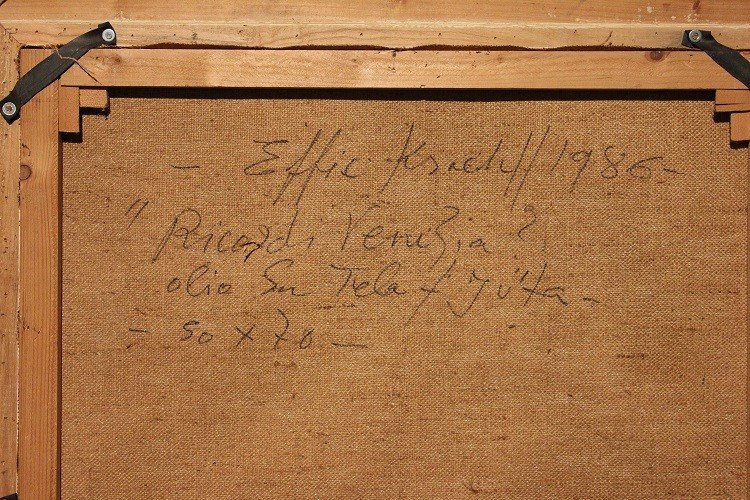 - Effie 1986-
"Ricordi Venezia"
olio Su Tela + Juta -
- 50 x 70 -